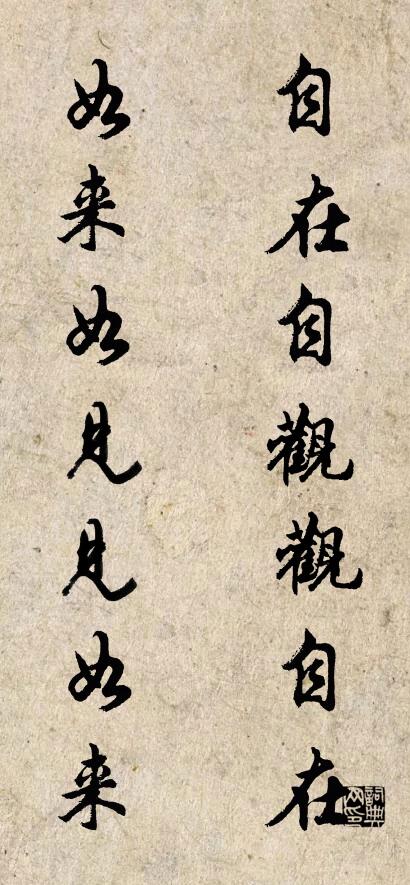 自在自觀觀自在
如来如見見如来
詞典网印